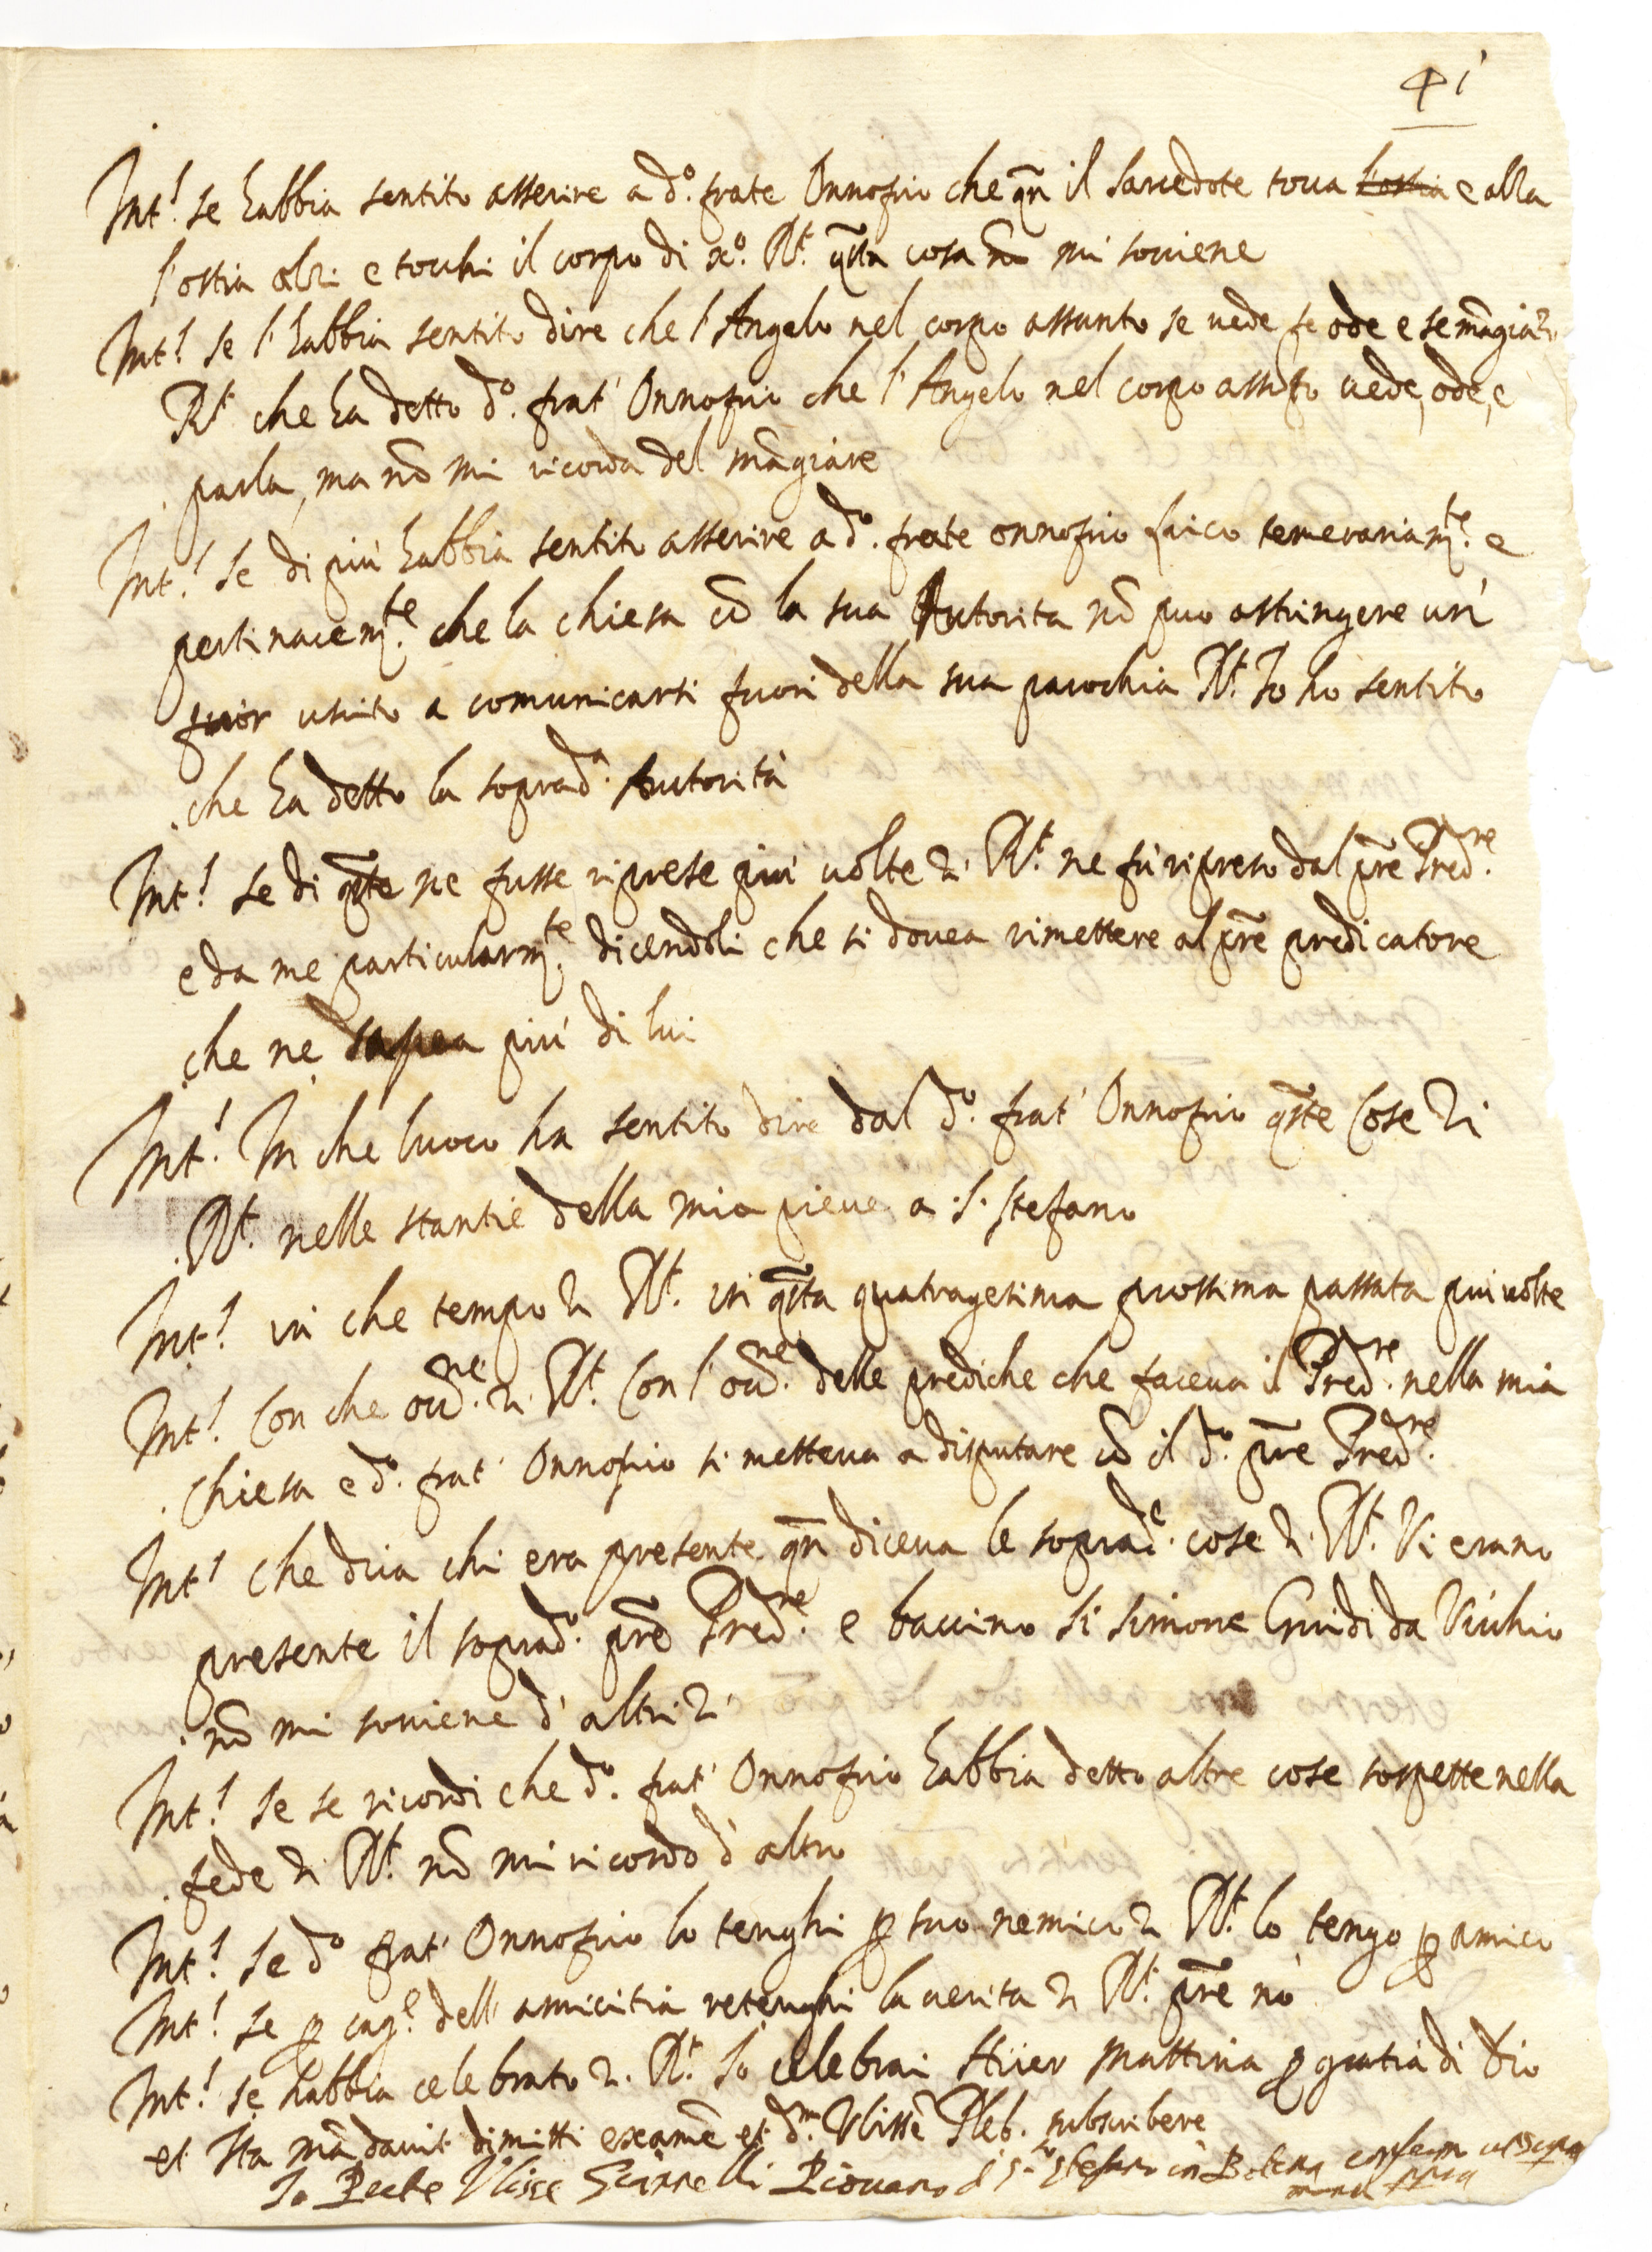 41
Int.! se habbia sentito asserire a d.º frate Onnofrio che qñ il sarcedote tocca l'ostia e alla
l'ostia alzi e tocchi il corpo di xº. Rt. q̃sta cosa nõ mi souiene
Int.! se l'habbia sentito dire che l'Angelo nel corpo assunto se uede se ode e se mãgia &
Rt. che ha detto d.º frat' Onnofrio che l'Angelo nel corpo assũto uede, ode, e
parla, ma nõ mi ricorda del mãgiare
Int.! se di più habbia sentito asserire a d.º frate onnofrio temerariam.te e
pertinacem.te che la chiesa cõ la sua Autorita nõ puo astringere un'
usato a comunicarsi fuori della sua parochia Rt. Io ho sentito
che ha detto la soprad.a Autorità
Int.! se di q̃ste ne fusse riprese più uolte & Rt. ne fù ripreso dal p̃re Pred.re
e da me particularm.te dicendoli che si douea rimettere al p̃re predicatore
che ne sapea più di lui
Int.! In che luoco ha sentito dire dal d.º frat' Onnofrio q̃ste Cose &
Rt. nelle stantie della mia pieue a S. stefano
Int.! in che tempo & Rt. in q̃sta quatragesima prossima passata piu uolte
Int.! Con che occ.ne & Rt. Con l'occ.ne delle prediche che faceua il Pred.re nella mia
Chiesa e d.º frat' Onnofrio si metteua a disputare cõ il d.º p̃re Pred.re
Int.! che dica chi era presente qñ diceua le soprad.e cose & Rt. Vi erano
presente il soprad.º p̃re Pred.re e baccino di simone Guidi da Vicchio
nõ mi souiene d'altri &
Int.! se se ricordi che d.º frat' Onnofrio habbia detto altre cose sospette nella
fede & Rt. nõ mi ricordo d'altro
Int.! se d.º frat' Onnofrio lo tenghi ꝑ suo nemico & Rt. lo tengo ꝑ amico
Int.! se ꝑ cag.e dell' amicitia retenghi la uerita & Rt. p̃re nò
Int.! se habbia celebrato &. Rt. Io celebrai Hiier mattina ꝑ gratia di Dio
et Ita mãdauit dimitti examẽ et d.m Ulissẽ Pleb. subscribere
Io Prete Ulisse Piouano di S.to Stefano in Botena confesso ut supra
manu ppria